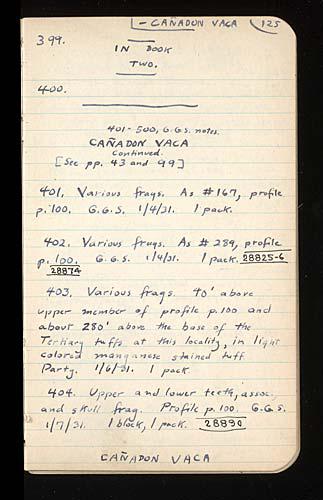 - CAÑADON VACA 125
399.
IN BOOK
TWO.
400.
401-500, G.G.S. notes.
CAÑADON VACA
Continued.
[See pp. 43 and 99]
401. Various frags. As #167, profile
p. 100. G.G.S. 1/4/31. 1 pack.
402. Various frags. As #289, profile
p. 100. G.G.S. 1/4/31. 1 pack. 28825-6
28874
403. Various frags. 40' above
upper member of profile p. 100 and
about 280' above the base of the
Tertiary tuffs at this locality, in light
colored manganese stained tuff.
Party. 1/6/31. 1 pack
404. Upper and lower teeth, assoc.,
and skull frag. Profile p. 100. G.G.S.
1/7/31. 1 block, 1 pack. 28890
CAÑADON VACA